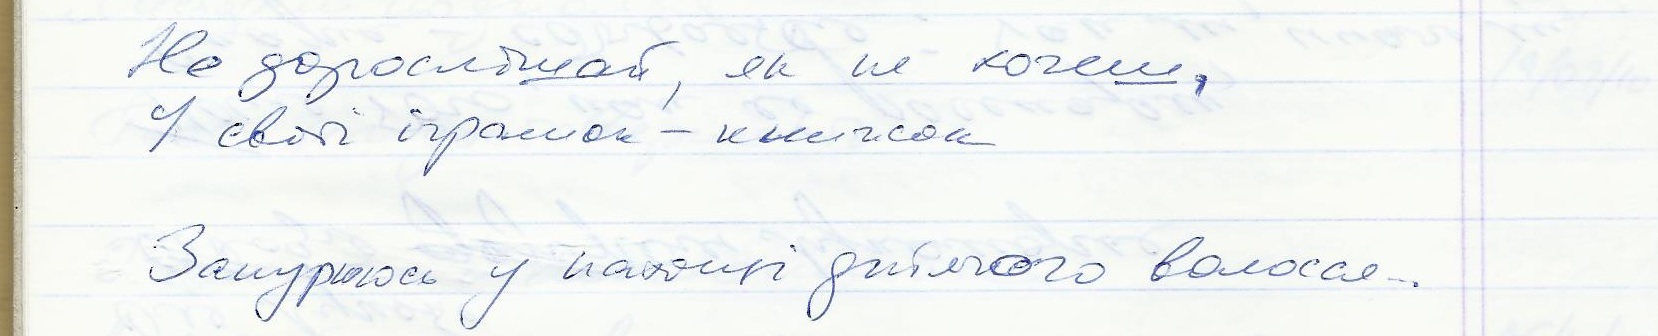 Не дорослішай, як не хочеш,
У світі іграшок – книжок
Занурююсь у пахощі дитячого волосся...